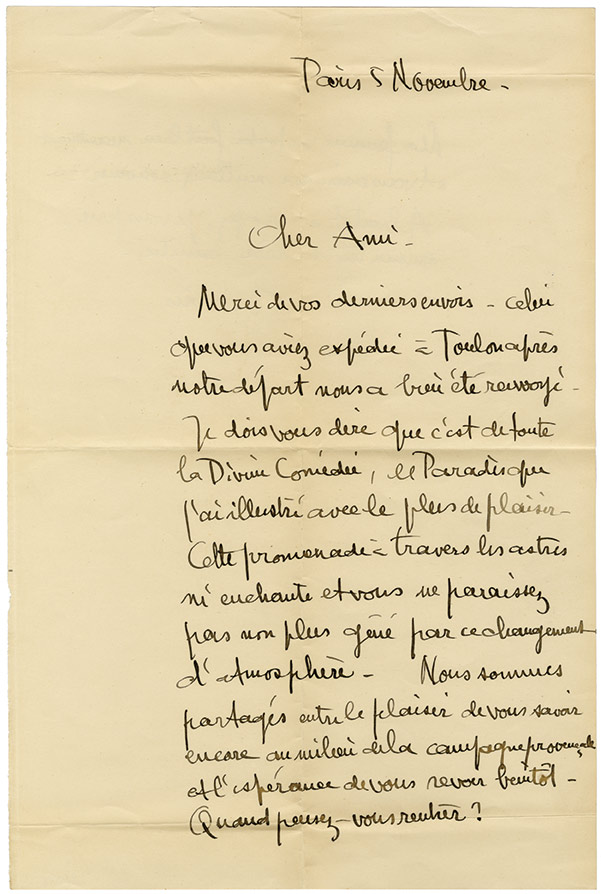 Paris 5 Novembre -
Cher Ami -
Merci de vos derniers envois - celui
que vous aviez expédié à Toulon après
notre départ nous a bien été renvoyé -
Je dois vous dire que c'est de toute
la Divine Comédie, le Paradis que
j'ai illustré avec le plus de plaisir -
Cette promenade à travers les astres
m'enchante et vous ne paraissez
pas non plus gêné par ce changement
d'atmosphère - Nous sommes
partagés entre le plaisir de vous savoir
encore au milieu de la campagne provençale
et l'espérance de vous revoir bientôt -
Quand pensez-vous rentrer ?